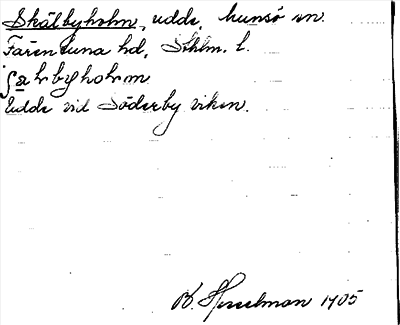 Skälbyholm, udde, Munsö sn.
Färentuna hd, Sthlm. l.
Udde vid Söderby viken.
B. Hesselman 1905